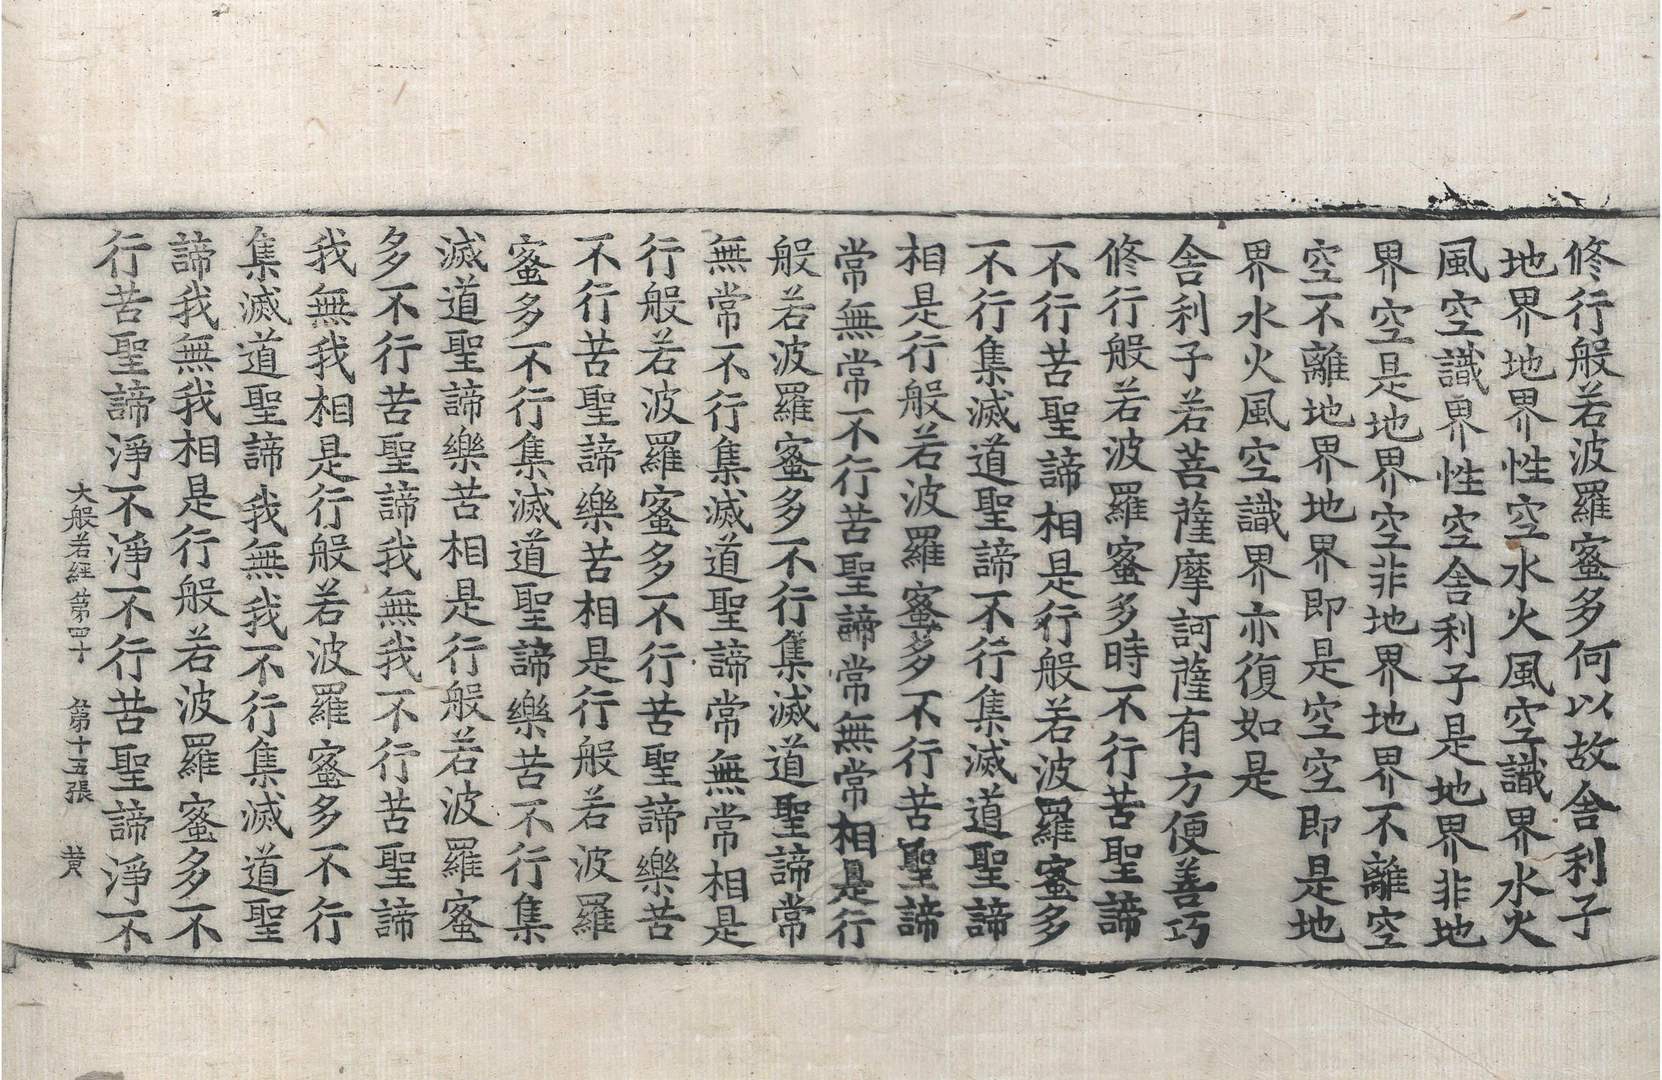 修行般若波羅蜜多何以故舍利子
地界地界性空水火風空識界水火
風空識界性空舍利子是地界非地
界空是地界空非地界地界不離空
空不離地界地界即是空空即是地
界水火風空識界亦復如是
舍利子若菩薩摩訶薩有方便善巧
修行般若波羅蜜多時不行苦聖諦
不行苦聖諦相是行般若波羅蜜多
不行集滅道聖諦不行集滅道聖諦
相是行般若波羅蜜多不行苦聖諦
常無常不行苦聖諦常無常相是行
般若波羅蜜多不行集滅道聖諦常
無常不行集滅道聖諦常無常相是
行般若波羅蜜多不行苦聖諦樂苦
不行苦聖諦樂苦相是行般若波羅
蜜多不行集滅道聖諦樂苦不行集
滅道聖諦樂苦相是行般若波羅蜜
多不行苦聖諦我無我不行苦聖諦
我無我相是行般若波羅蜜多不行
集滅道聖諦我無我不行集滅道聖
諦我無我相是行般若波羅蜜多不
行苦聖諦淨不淨不行苦聖諦淨不
大般若經第四十 第十五張 黃